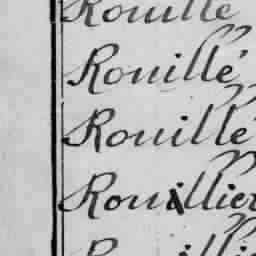 Rouillé
Rouillé
Rouillé
Rouillier